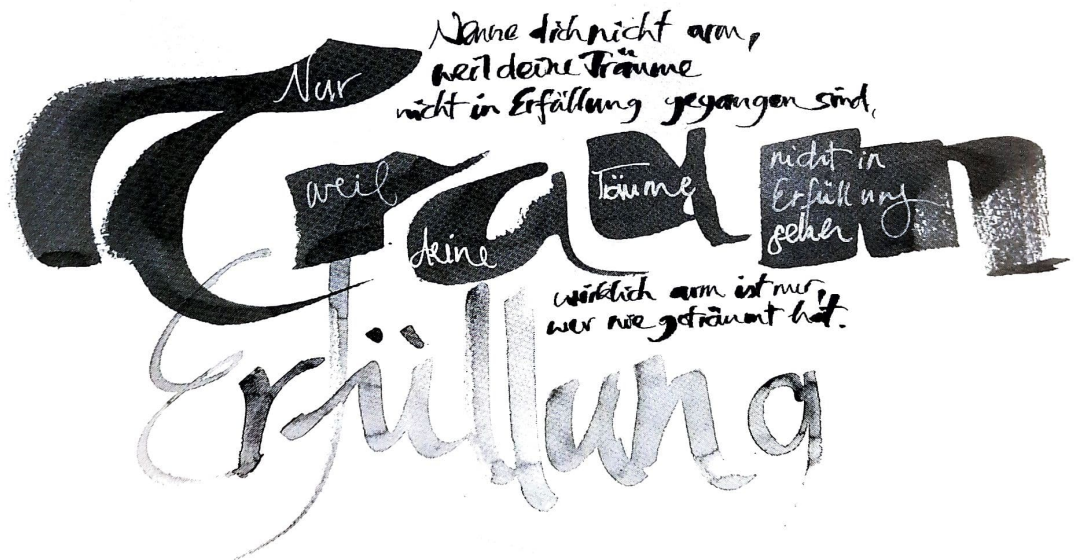 Nenne dich nicht arm,
weil deine Träume
nicht in Erfüllung gegangen sind,
Traum
Nur
weil
deine
Träume
nicht in
Erfüllung
gehen
wirklich arm ist nur,
wer nie geträumt hat.
Erfüllung